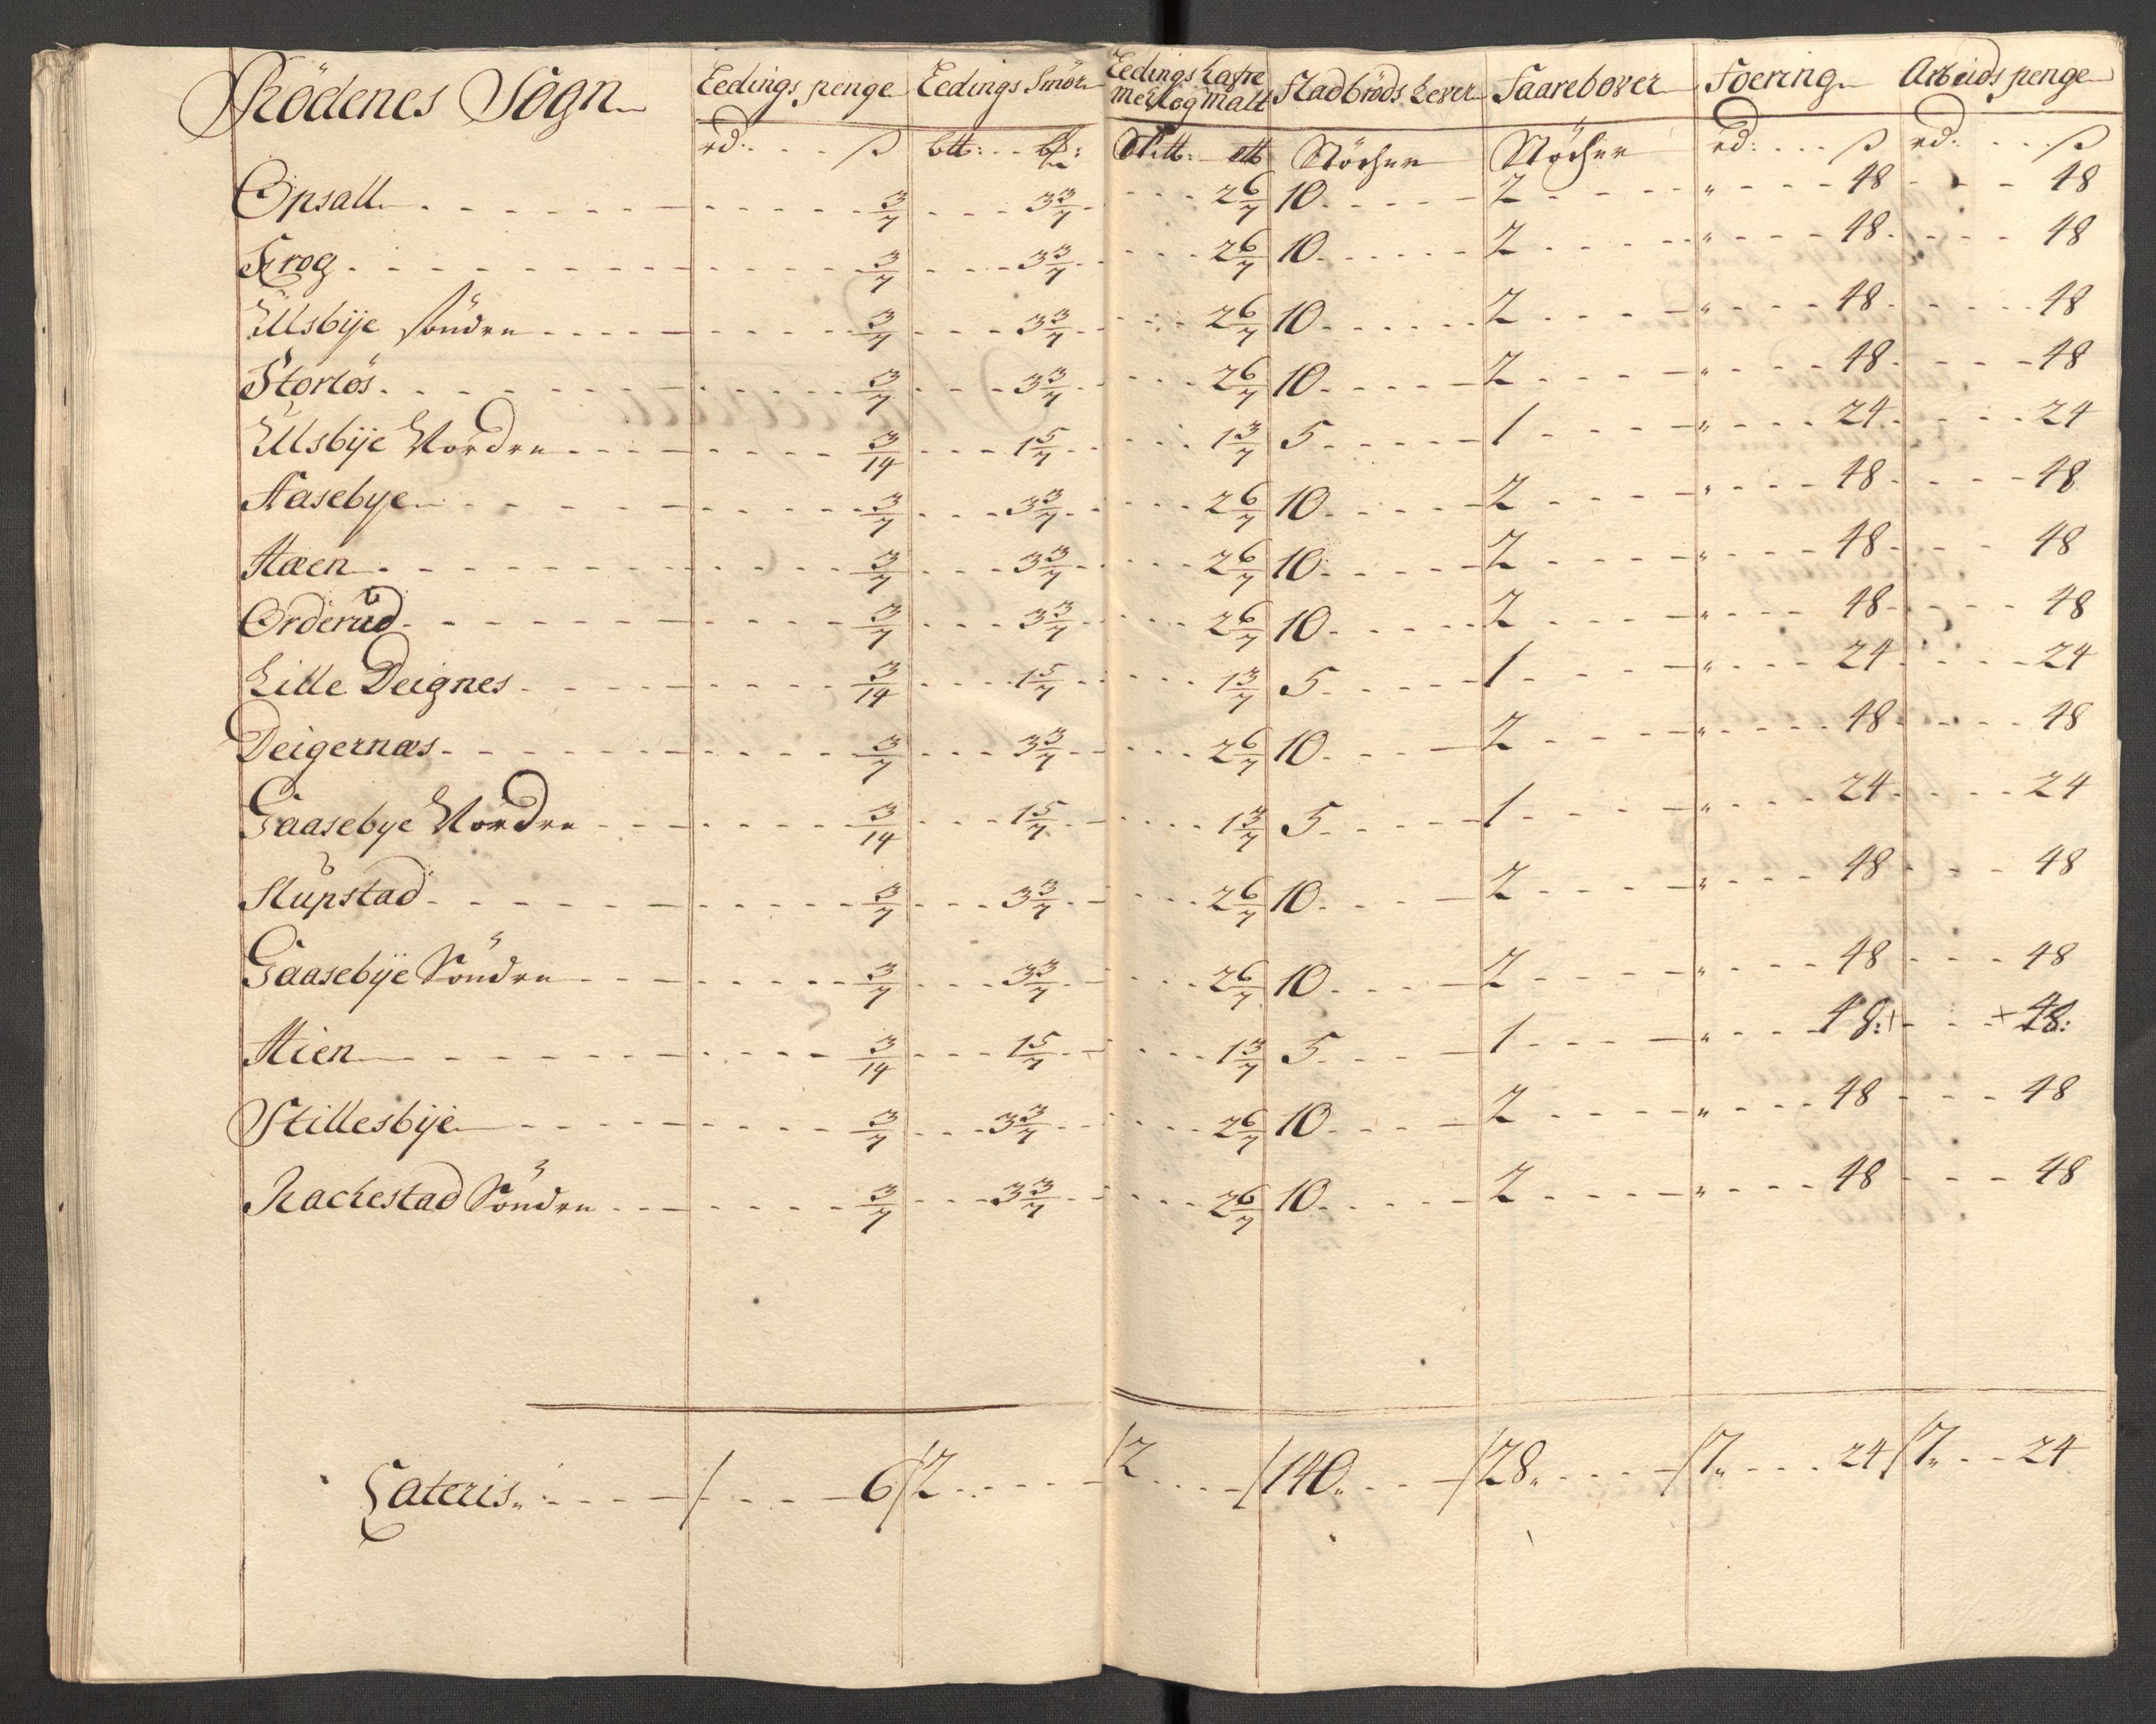 Rödenes Sogn Leedings penge Leedings Smör Leedings Hafre Meel og Malt Stadbröds Lever Faarebover Foering Arbeids penge
rd: ß btt: Stöcher Stöcher rd: ß rd: ß
Opsall 3/7 3 3/7 2 6/7 10 2 " 48 48
Krog 3/7 3 3/7 2 6/7 10 2 " 48 48
Ulsbye söndre 3/7 3 3/7 2 6/7 10 2 " 48 48
Storlös 3/7 3 3/7 2 6/7 10 2 " 48 48
Ulsbye Nordre 3/14 1 5/7 1 3/7 5 1 " 24 24
Aasebye 3/7 3 3/7 2 6/7 10 2 " 48 48
Haen 3/7 3 3/7 2 6/7 10 2 " 48 48
Orderud 3/7 3 3/7 2 6/7 10 2 " 48 48
Lille Deignes 3/14 1 5/7 1 3/7 5 1 " 24 24
Deigernæs 3/7 3 3/7 2 6/7 10 2 " 48 48
Gaasebye Nordre 3/14 1 5/7 1 3/7 5 1 " 24 24
Slupstad 3/7 3 3/7 2 6/7 10 2 " 48 48
Gaasebye Söndre 3/7 3 3/7 2 6/7 10 2 " 48 48
Hien 3/14 1 5/7 1 3/7 5 1 " 48:+ +48:
Stillesbye 3/7 3 3/7 2 6/7 10 2 " 48 48
Rachestad Söndre 3/7 3 3/7 2 6/7 10 2 " 48 48
Lateris 6 2 2 140 28 7 24 7 24